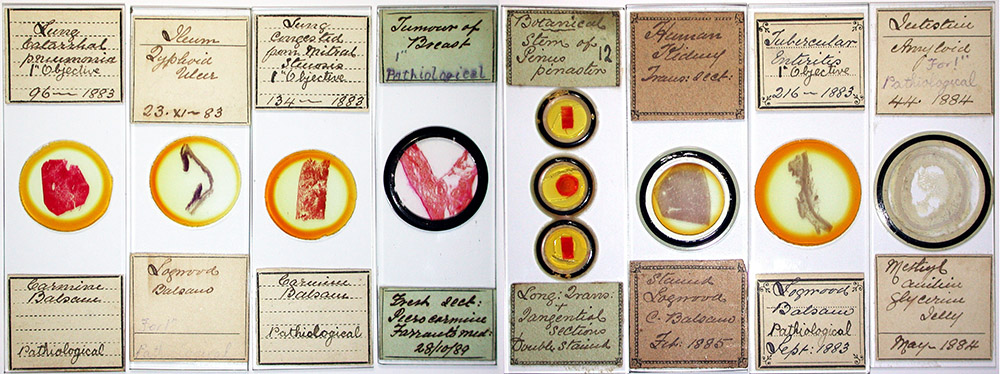 Lung
Catarrhal
pneumonia
1" Objective
96 — 1883
Carmine
Balsam
Pathiological
Ileum
Typhoid
Ulcer
23·XI—83
Logwood
Balsam
For 1"
Lung
Congested
from Mitral
Stenosis
1" Objective
134 — 1883
Carmine
Balsam
Pathiological
Tumour of
Breast
1"
Pathiological
Fresh sect:
Picrocarmine
Farrants med:
28/10/89
Botanical
Stem of
Penus 12
penaster
Long: Trans:
+
Tangential
Sections
Double Stained
Human
Kidney
Trans: sect:
Stained
Logwood
C. Balsam
Feb: 1885
Tubercular
Entiritis
1" Objective
216 — 1883
Logwood
Balsam
Pathiological
Sept: 1883
Intestine
Amyloid
For 1"
Pathiological
44. 1884
Methyl
anilin
Glycerin
Jelly
May — 1884